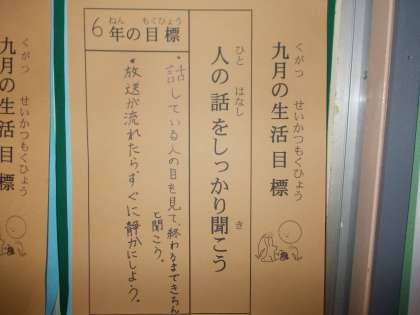 九月の生活目標
くがつ せいかつもくひょう
人の話をしっかり聞こう
ひと はなし き
6年の目標
ねん もくひょう
・話している人の目を見て、終わるまできちん
と聞こう。
・放送が流れたらすぐに静かにしよう。
九月の生活目標
くがつ せいかつもくひょう